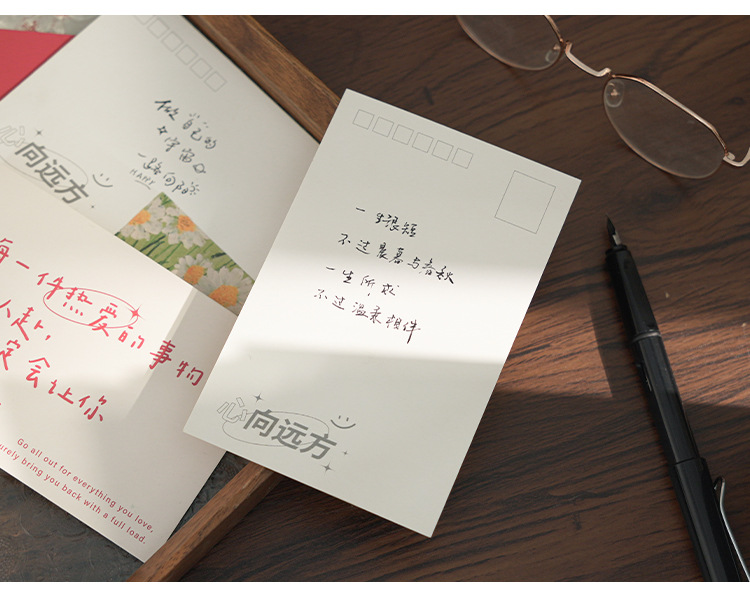 做自己的
宇宙
一路向阳
HAPPY
心向远方
一件热爱的事物
会让你
Go all out for everything you love,
surely bring you back with a full load.
一生很短
不过晨暮与春秋
一生所求
不过温柔相伴
心向远方